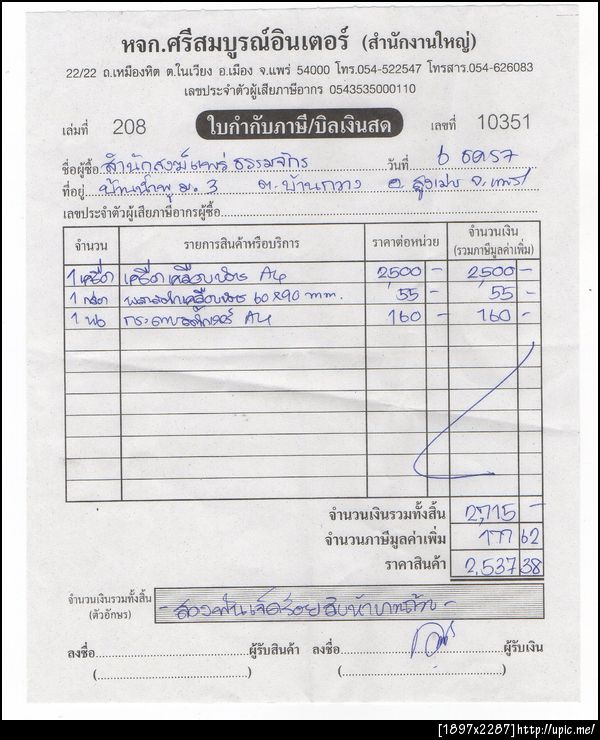 หจก.ศรีสมบูรณ์อินเตอร์ (สำนักงานใหญ่)
22/22 ถ.เหมืองหิต ต.ในเวียง อ.เมือง จ.แพร่ 54000 โทร.054-522547 โทรสาร.054-626083
เลขประจำตัวผู้เสียภาษีอากร 0543535000110
เล่มที่ 208 ใบกำกับภาษี/บิลเงินสด เลขที่ 10351
ชื่อผู้ซื้อ สำนักสงฆ์แพร่ธรรมจักร วันที่ 6 ธค 57
ที่อยู่ ม. 3 ต. บ้านกวาง อ. สูงเม่น จ. แพร่
เลขประจำตัวผู้เสียภาษีอากรผู้ซื้อ
จำนวน รายการสินค้าหรือบริการ ราคาต่อหน่วย จำนวนเงิน (รวมภาษีมูลค่าเพิ่ม)
1 เครื่อง เครื่องเคลือบบัตร A4 2,500 - 2,500 -
1 กล่อง พลาสติกเคลือบบัตร 60x90 mm. 55 - 55 -
1 ห่อ กระดาษสติ๊กเกอร์ A4 160 - 160 -
จำนวนเงินรวมทั้งสิ้น 2,715 -
จำนวนภาษีมูลค่าเพิ่ม 177 62
ราคาสินค้า 2,537 38
จำนวนเงินรวมทั้งสิ้น (ตัวอักษร) - สองพันเจ็ดร้อยสิบห้าบาทถ้วน -
ลงชื่อ ผู้รับสินค้า ลงชื่อ ผู้รับเงิน
[1897x2287]http://upic.me/